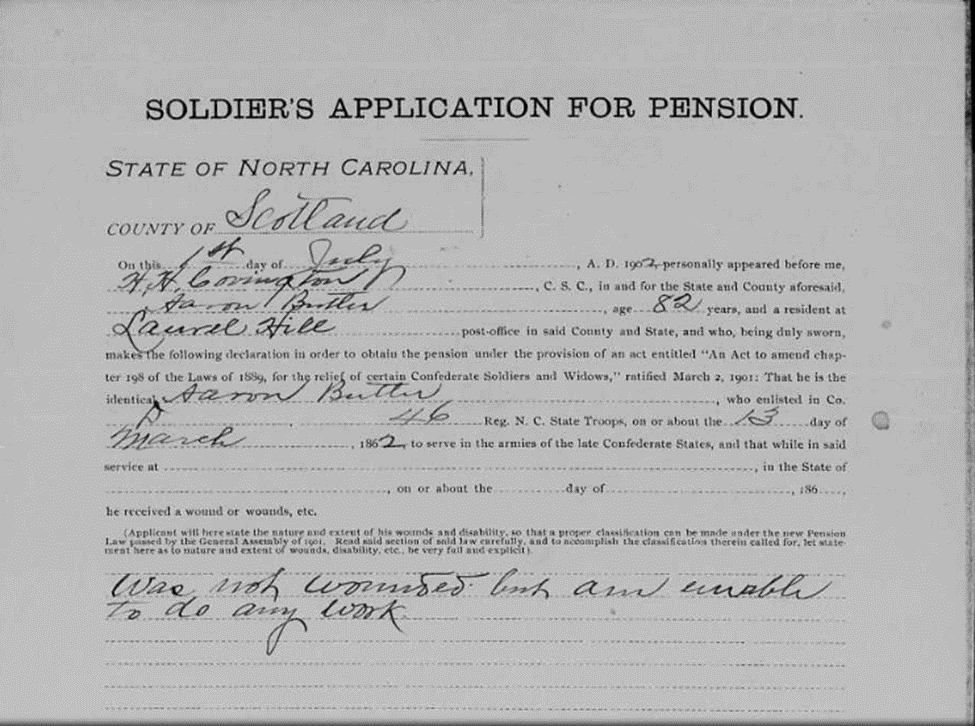 SOLDIER'S APPLICATION FOR PENSION.
STATE OF NORTH CAROLINA,
COUNTY OF Scotland
On this 1st day of July, A. D. 1902 personally appeared before me,
H. H. Covington, C. S. C., in and for the State and County aforesaid,
Aaron Butler, age 82 years, and a resident at
Laurel Hill post-office in said County and State, and who, being duly sworn,
makes the following declaration in order to obtain the pension under the provision of an act entitled "An Act to amend chap-
ter 198 of the Laws of 1889, for the relief of certain Confederate Soldiers and Widows," ratified March 2, 1901: That he is the
identical Aaron Butler, who enlisted in Co.
46 Reg. N. C. State Troops, on or about the 13 day of
March, 1862, to serve in the armies of the late Confederate States, and that while in said
service at, in the State of
, on or about the day of, 186 ,
he received a wound or wounds, etc.
(Applicant will here state the nature and extent of his wounds and disability, so that a proper classification can be made under the new Pension
Law passed by the General Assembly of 1901. Read said section of said law carefully, and to accomplish the classification therein called for, let state-
ment here as to nature and extent of wounds, disability, etc., be very full and explicit).
Was not wounded but am unable
to do any work